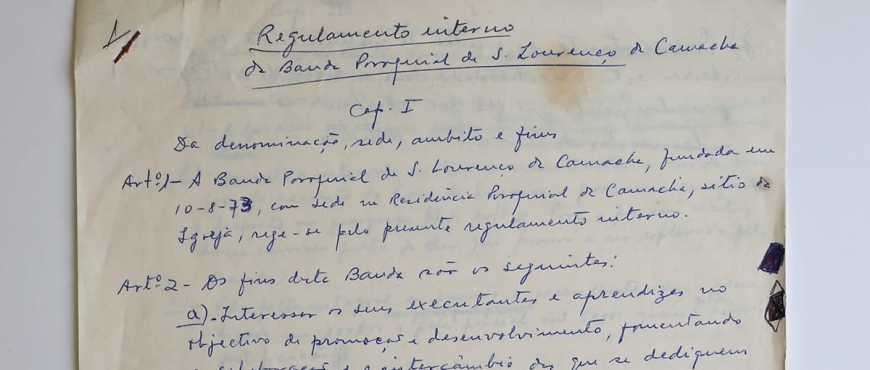 1
Regulamento interno
da Banda Paroquial de S. Lourenço da Camacha
Cap. I
Da denominação, sede, ambito e fins
Artº.1- A Banda Paroquial de S. Lourenço da Camacha, fundada em
10-8-73, com sede na Residência Paroquial da Camacha, sítio da
Igreja, rege-se pelo presente regulamento interno.
Artº.2- Os fins desta Banda são os seguintes:
a)-Interessar os seus executantes e aprendizes no
objectivo de promoção e desenvolvimento, fomentando
a colaboração e o intercâmbio dos que se dediquem